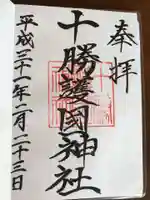 奉拝
十勝護國神社
平成三十一年一月二十三日